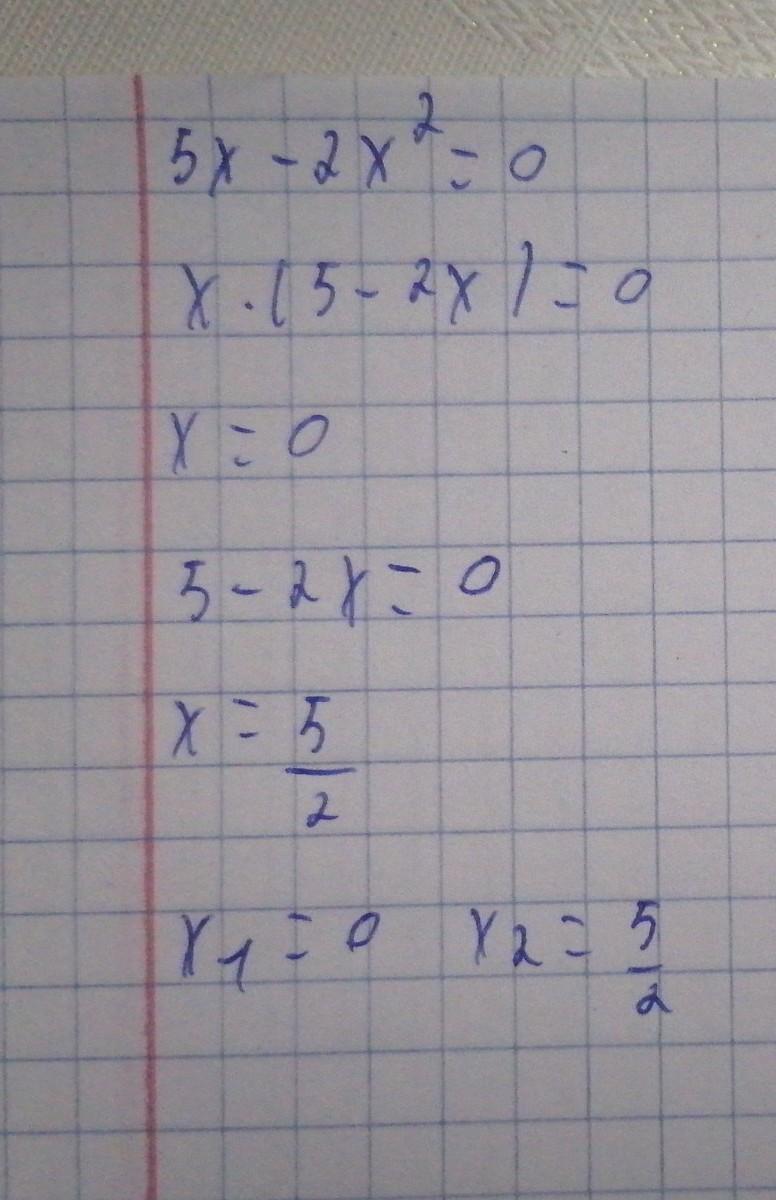 5x - 2x² = 0
x · (5 - 2x) = 0
x = 0
5 - 2x = 0
x = 5/2
x₁ = 0 x₂ = 5/2